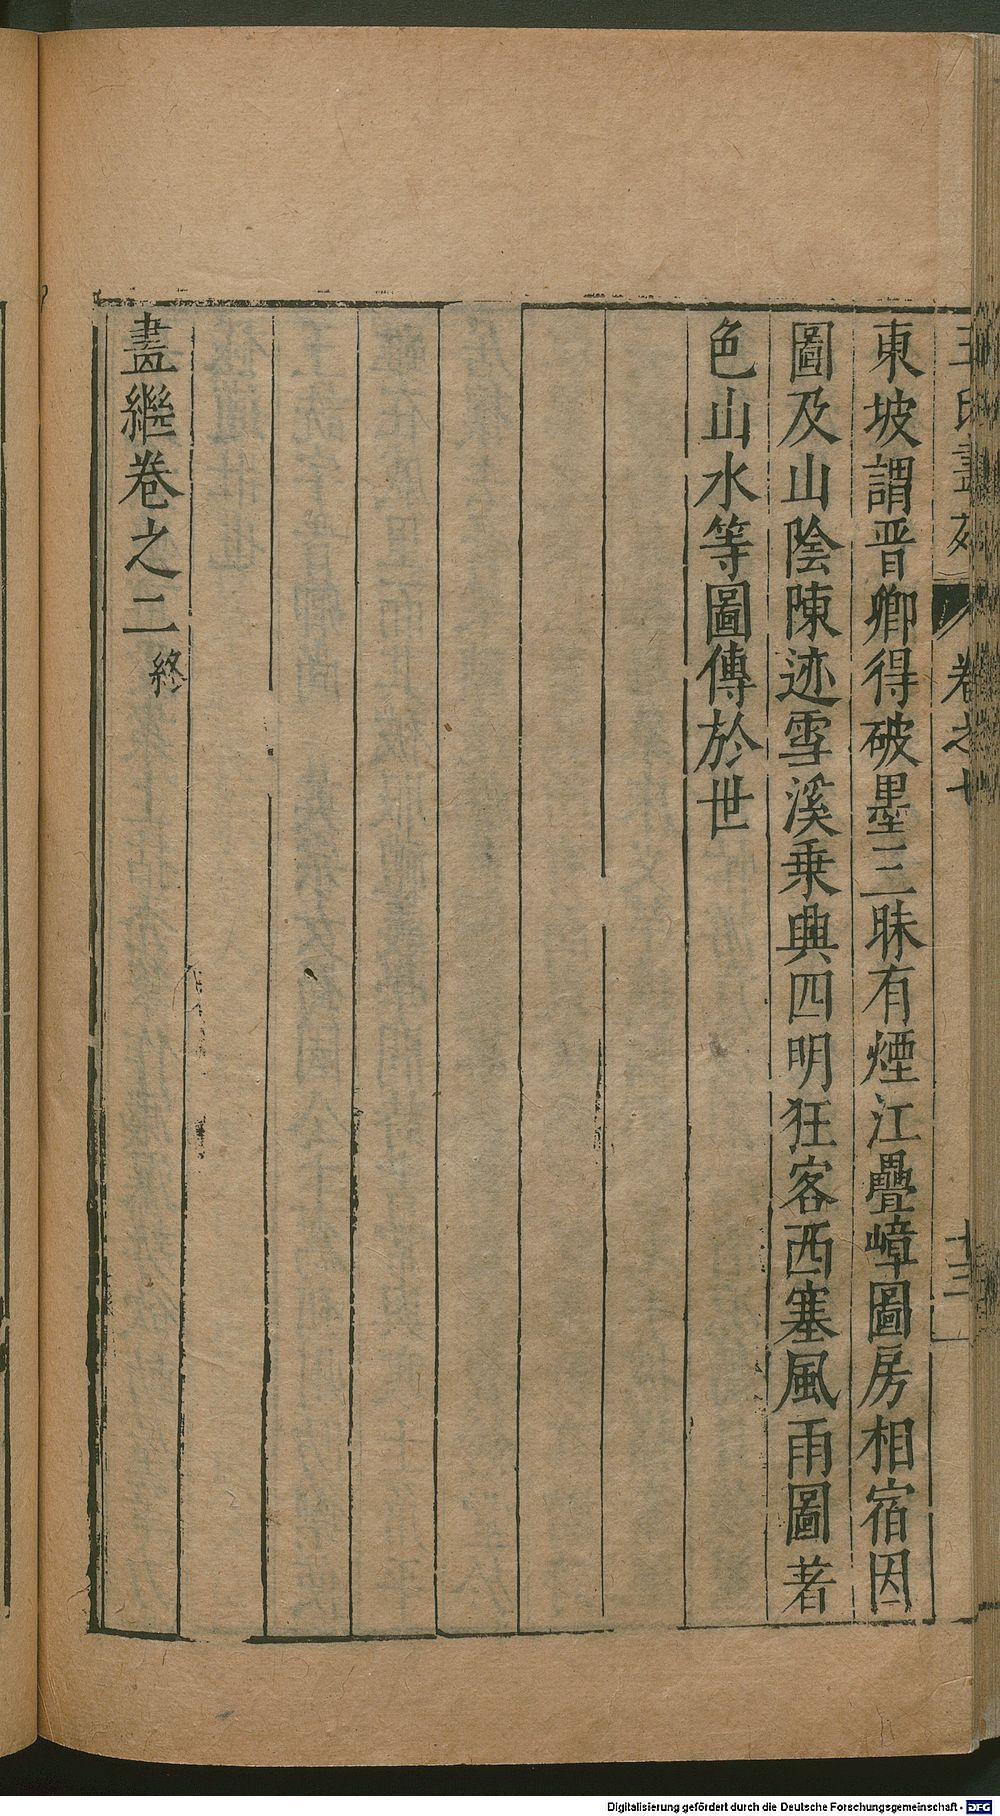 王氏畫苑 卷之七 十三
東坡謂晋卿得破墨三昧有煙江疊嶂圖房相宿因
圖及山陰陳迹雪溪乗興四明狂客西塞風雨圖著
色山水等圖傳於世
畫繼卷之二終
Digitalisierung gefördert durch die Deutsche Forschungsgemeinschaft - DFG